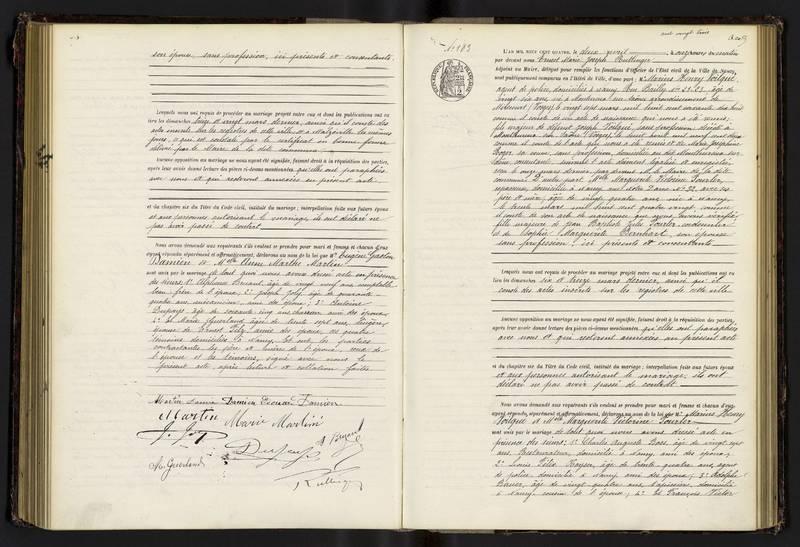 son épouse, sans profession, ici présents et consentants.
Lesquels nous ont requis de procéder au mariage projeté entre eux et dont les publications ont eu
lieu les dimanches treize et vingt mars dernier, ainsi qu'il conste des
actes inscrits sur les registres de cette ville et à Malzéville les mêmes
jours, ce qui est constaté par le certificat en bonne forme
délivré par le Maire de la dite commune.
Aucune opposition au mariage ne nous ayant été signifiée, faisant droit à la réquisition des parties,
après leur avoir donné lecture des pièces ci-dessus mentionnées qu'elles ont paraphées
avec nous et qui resteront annexées au présent acte
et du chapitre six du Titre du Code civil, intitulé du mariage ; interpellation faite aux futurs époux
et aux personnes autorisant le mariage, ils ont déclaré ne
pas avoir passé de contrat.
Nous avons demandé aux requérants s'ils veulent se prendre pour mari et femme et chacun d'eux
ayant répondu séparément et affirmativement, déclarons au nom de la loi que Mr Eugène Gaston
Damien et Mlle Anne Marthe Martin
sont unis par le mariage, de tout quoi nous avons dressé acte en présence
des sieurs 1° Alphonse Bruant, âgé de vingt neuf ans, comptable
beau frère de l'époux; 2° Joseph Joly, âgé de quarante-
quatre ans, mécanicien, ami des époux; 3° Antoine
Dufays âgé de soixante cinq ans chasseur ami des époux
4° et Marie Guerland âgée de trente sept ans, lingère,
amie des époux, les quatre
témoins domiciliés à Nancy. Et ont les parties
contractantes, les père et mère de l'époux, ceux de
l'épouse et les témoins, signé avec nous le
présent acte, après lecture et collation faites
Marthe Damien Damien Edouard Damien
Martin Marie Martin
J. Joly
Dufays A Bruant
M. Guerland
Rullinger
cent vingt trois
N° 183
L'AN MIL NEUF CENT QUATRE, le deux avril à onze heures du matin
par devant nous Ernest Marie Joseph Rullinger
Adjoint au Maire, délégué pour remplir les fonctions d'Officier de l'État civil de la Ville de Nancy,
sont publiquement comparus en l'Hôtel de Ville, d'une part : Mr Marius Henry Voilqué,
agent de police, domicilié à Nancy, Rue Bailly, N° âgé de
vingt six ans, né à arrondissement de
Mirecourt (Vosges) le vingt sept mars mil huit cent soixante dix huit
comme il conste de son acte de naissance qui nous a été remis;
fils majeur de défunt Joseph Voilqué, sans profession, décédé à
(Vosges), le huit avril mil neuf cent
comme il conste de l'acte qui nous a été remis et de Marie Joséphine
Boyer, sa veuve, sans profession, domiciliée au dit
consentante suivant l'acte dûment légalisé et enregistré,
reçu le onze mars dernier, par devant M. le Maire de la dite
commune. D'autre part : Mlle Marguerite Victorine Tourter,
repasseuse, domiciliée à Nancy, rue Notre Dame N° 32, avec ses
père et mère, âgée de vingt quatre ans née à Nancy
le trente mars mil huit cent quatre vingt, comme
il conste de son acte de naissance que nous avons vérifié,
fille majeure de Jean Baptiste Jules Tourter, cordonnier
et de Sophie Marguerite Bernhart, son épouse
sans profession, ici présents et consentants
Lesquels nous ont requis de procéder au mariage projeté entre eux et dont les publications ont eu
lieu les dimanches six et treize mars dernier, ainsi qu'il
conste des actes inscrits sur les registres de cette ville
Aucune opposition au mariage ne nous ayant été signifiée, faisant droit à la réquisition des parties,
après leur avoir donné lecture des pièces ci-dessus mentionnées, qu'elles ont paraphées
avec nous et qui resteront annexées au présent acte
et du chapitre six du Titre du Code civil, intitulé du mariage ; interpellation faite aux futurs époux
et aux personnes autorisant le mariage, ils ont
déclaré ne pas avoir passé de contrat
Nous avons demandé aux requérants s'ils veulent se prendre pour mari et femme et chacun d'eux
ayant répondu séparément et affirmativement, déclarons au nom de la loi que Mr Marius Henry
Voilqué et Mlle Marguerite Victorine Tourter
sont unis par le mariage de tout quoi nous avons dressé acte en
présence des sieurs : 1° Charles Auguste Bass, âgé de vingt sept
ans, Restaurateur, domicilié à Nancy, ami des époux;
2° Louis Félix Royer, âgé de trente quatre ans, agent
de police domicilié à Nancy, ami des époux; 3° Adolphe
Bauer, âgé de vingt quatre ans, tapissier, domicilié
à Nancy, cousin de l'épouse; 4° et François Victor